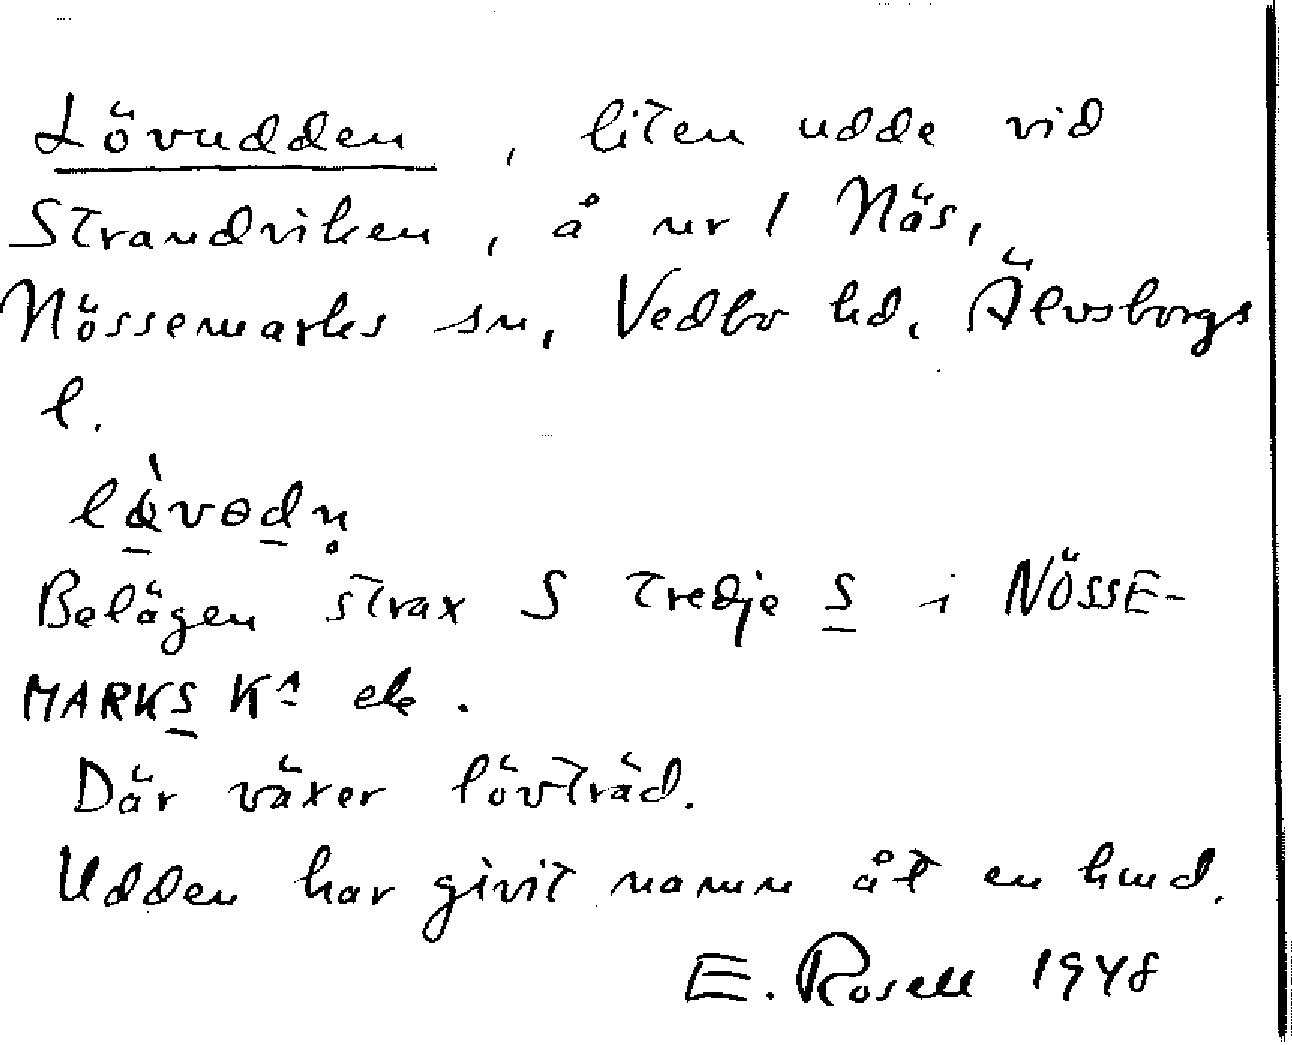 Lövudden, liten udde vid
Strandviken, å nr 1 Näs,
Nössemarks sn, Vedbo hd, Älvsborgs
l.
Belägen strax S tredje S i NÖSSE-
MARKS Kª ek.
Där växer lövträd.
Udden har givit namn åt en hund.
E. Rosell 1948